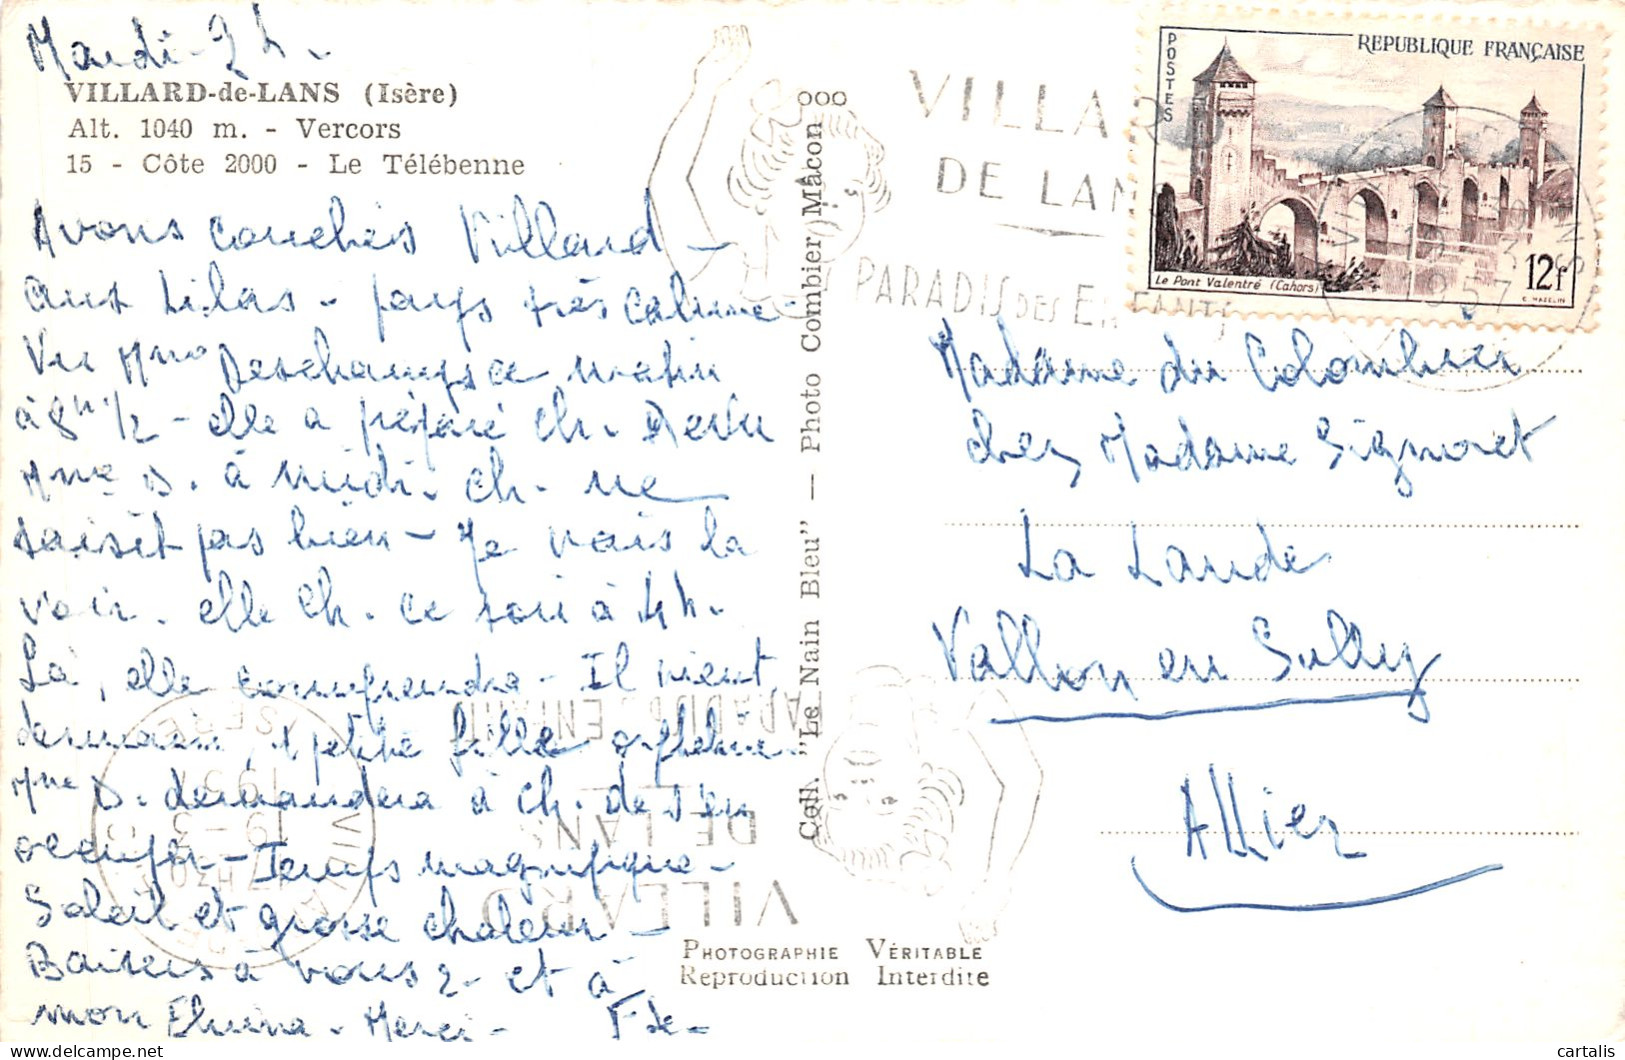 Mardi - 2 h -
VILLARD-de-LANS (Isère)
Alt. 1040 m. - Vercors
15 - Côte 2000 - Le Télébenne
Avons couchés Villard -
aux Lilas - pays très calme -
Vu Mme Deschamps ce matin
à 8h 1/2 - elle a préparé Ch.
Mme D. à midi - Ch. ne
saisit pas bien - Je vais la
voir. elle Ch. ce soir à 4h.
Là, elle comprendra - Il vient
demain, 1 petite fille orpheline -
Mme D. demandera à Ch. de s'en
occuper - Temps magnifique -
Soleil et grosse chaleur -
Baisers à vous 2 - et à
mon - Merci -
Coll. "Le Nain Bleu" — Photo Combier Mâcon
PHOTOGRAPHIE VÉRITABLE
Reproduction Interdite
VILLARD
DE LANS
PARADIS DES ENFANTS
POSTES
REPUBLIQUE FRANÇAISE
Le Pont Valentré (Cahors)
12f
C. HAZELIN
1957
Madame du Colombier
chez Madame Signoret
La Laude
Vallon en Sully
Allier
PARADIS DES ENFANTS
DE LANS
VILLARD
ISERE
19-3
cartalis